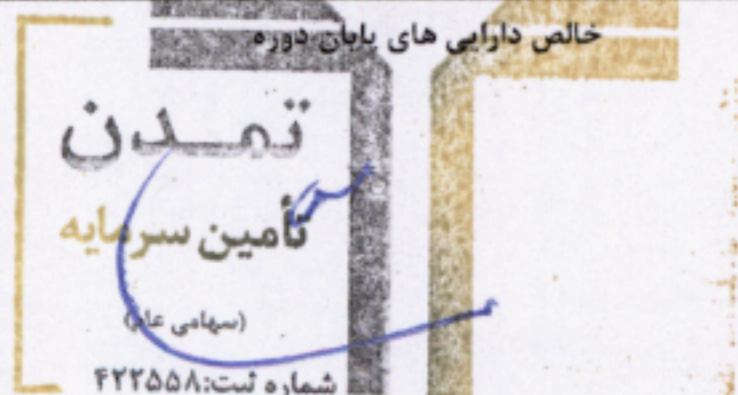 خالص دارایی های پایان دوره
تمدن
تأمین سرمایه
(سهامی عام)
شماره ثبت:۴۲۲۵۵۸